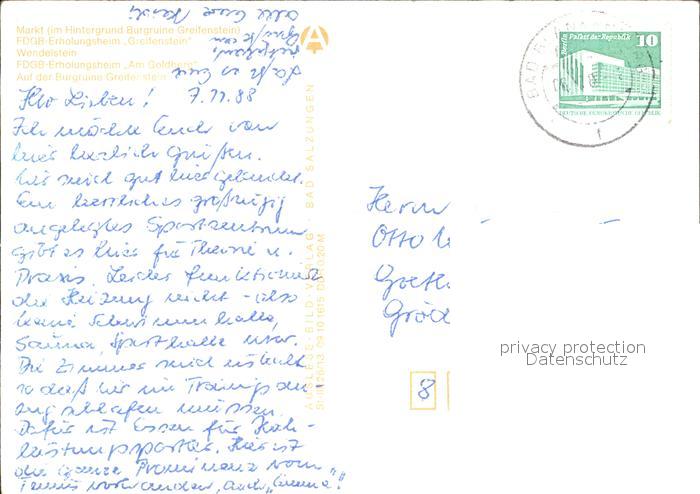 Markt (im Hintergrund Burgruine Greifenstein)
FDGB-Erholungsheim „Greifenstein"
Wendelstein
FDGB-Erholungsheim „Am Goldberg"
Auf der Burgruine Greifenstein
Ihr Lieben! 7.11.88
Ich möchte Euch von
hier herzlich grüßen.
Wir sind gut hier gelandet.
Ein herrliches großzügig
angelegtes Sportzentrum
gibt es hier für Theorie u.
Praxis. Leider funktioniert
die Heizung nicht - also
keine Schwimmhalle,
Sauna, Sporthalle usw.
Die Zimmer sind eiskalt
so daß wir im Trainingsan-
zug schlafen müssen.
Dafür ist Essen für Hoch-
leistungssportler. Hier ist
die ganze Prominenz vom
Tennis vorhanden, auch
AUSLESE-BILD-VERLAG · BAD SALZUNGEN
Berlin Palast der Republik
10
DEUTSCHE DEMOKRATISCHE REPUBLIK
BAD
Herrn
Otto
Goeth
Gröd
8
privacy protection
Datenschutz